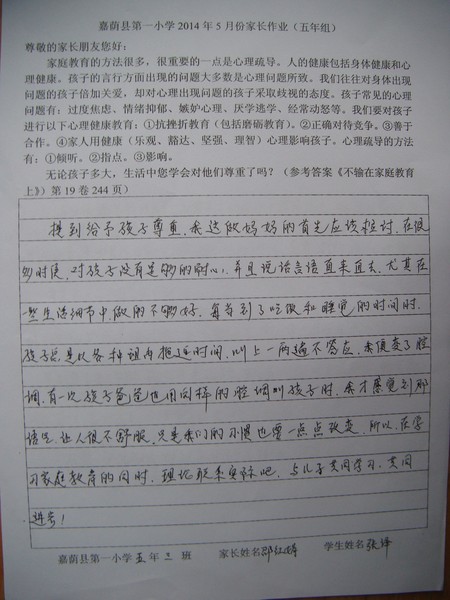 嘉荫县第一小学2014年5月份家长作业（五年组）
尊敬的家长朋友您好：
家庭教育的方法很多，很重要的一点是心理疏导。人的健康包括身体健康和心
理健康。孩子的言行方面出现的问题大多数是心理问题所致。我们往往对身体出现
问题的孩子倍加关爱，却对心理出现问题的孩子采取歧视的态度。孩子常见的心理
问题有：过度焦虑、情绪抑郁、嫉妒心理、厌学逃学、经常动怒等。我们要对孩子
进行以下心理健康教育：①抗挫折教育（包括磨砺教育）。②正确对待竞争。③善于
合作。④家人用健康（乐观、豁达、坚强、理智）心理影响孩子。心理疏导的方法
有：①倾听。②指点。③影响。
无论孩子多大，生活中您学会对他们尊重了吗？（参考答案《不输在家庭教育
上》）第19卷244页）
提到给予孩子尊重，我这做妈妈的首先应该检讨，在很
多时候，对孩子没有足够的耐心，并且说话言语直来直去，尤其在
一些生活细节中，做的不够好，每当到了吃饭和睡觉的时间时，
孩子总是以各种理由拖延时间，叫上一两遍不答应，我便变了腔
调，有一次孩子爸爸也用同样的腔调叫孩子时，我才感觉到那
语气，让人很不舒服，只是我们的习惯也需一点点改变，所以，在学
习家庭教育的同时，理论联系实际吧，与儿子共同学习，共同
进步！
嘉荫县第一小学五年三班 家长姓名邵红 学生姓名张